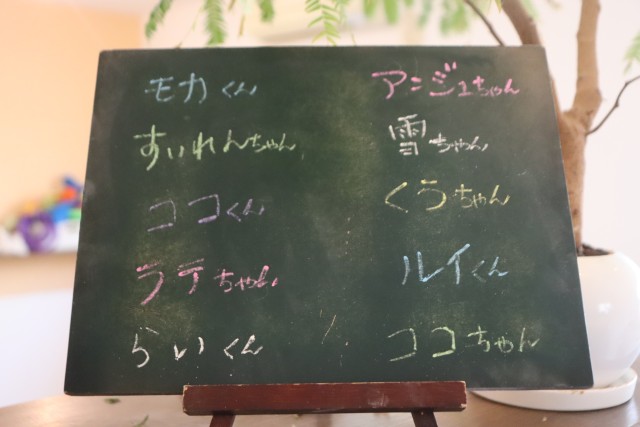 モカくん
すいれんちゃん
ココくん
ラテちゃん
らいくん
アンジュちゃん
雪ちゃん
くうちゃん
ルイくん
ココちゃん